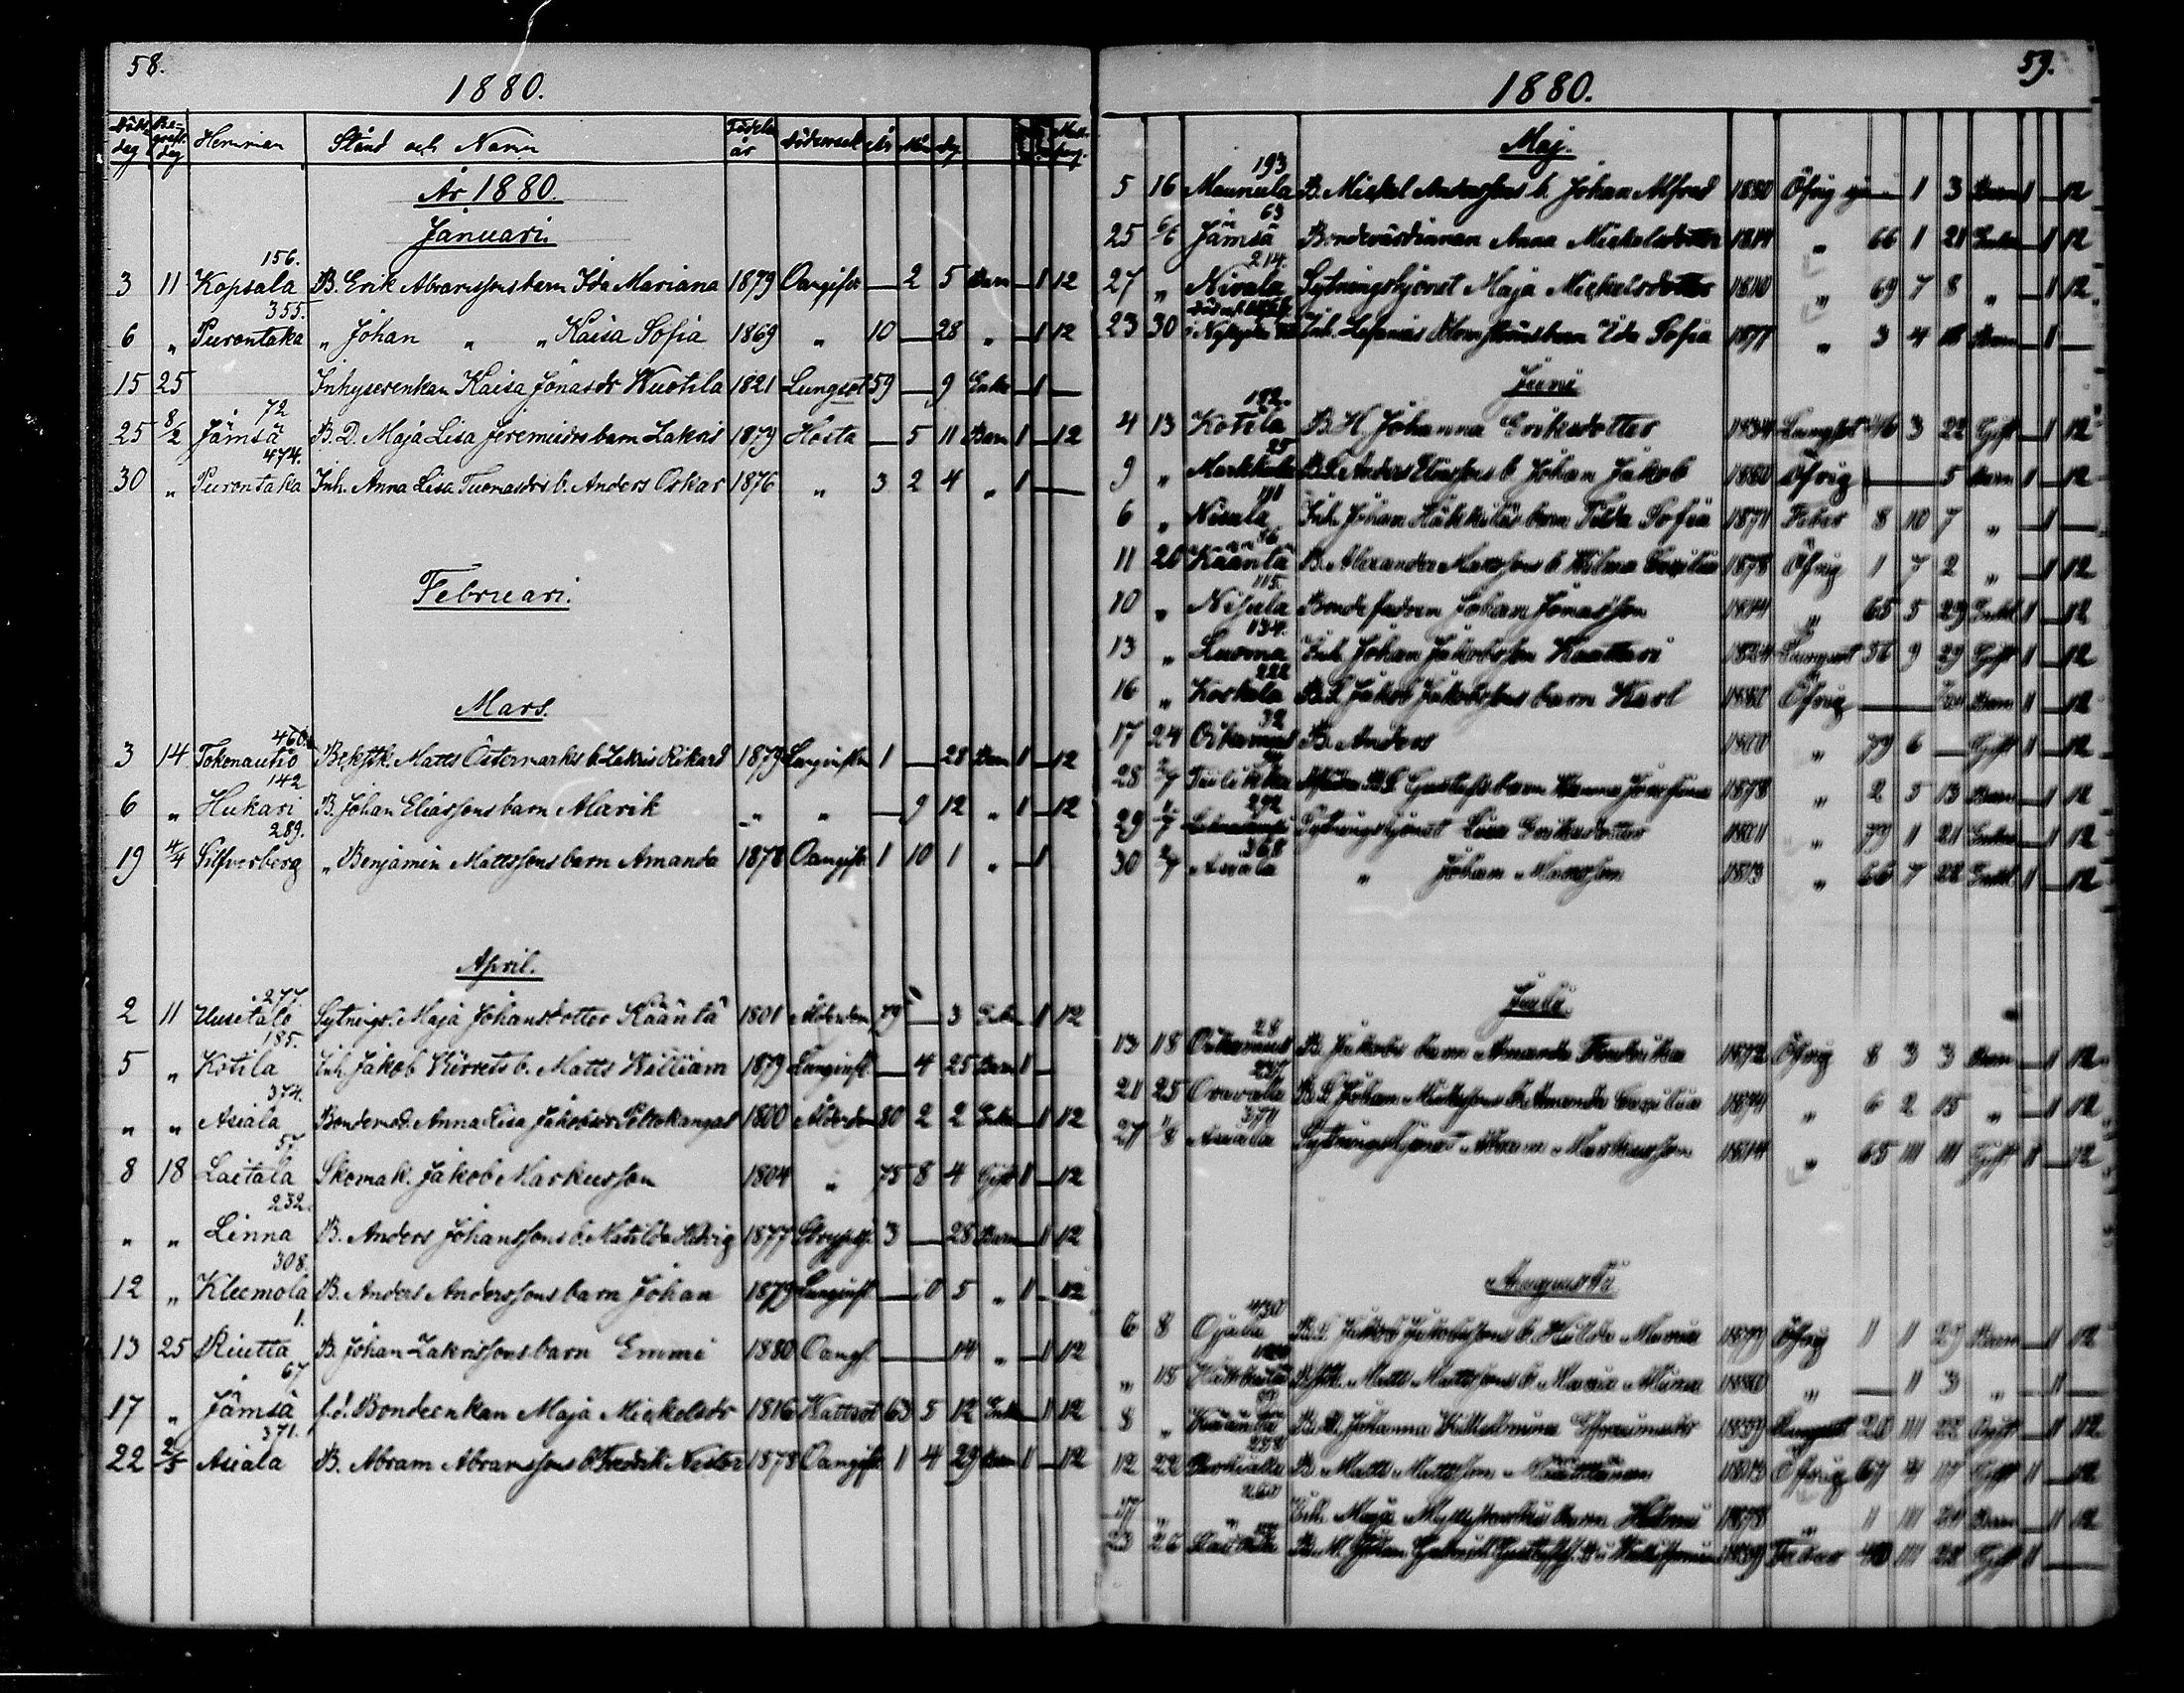 58.
1880.
Döds dag Be-grafn. dag Hemman Stånd och Namn Födelse år Dödsorsak År Mån Dag
År 1880.
Januari.
156.
3 11 Kopsala B. Erik Abramssons barn Ida Mariana 1879 Oangifven — 2 5 Barn — 1 12
355.
6 „ Purontaka „ Johan „ „ Kaisa Sofia 1869 „ 10 — 28 „ — 1 12
15 25 Inhyserenkan Kaisa Jonasdr Kuotila 1821 Lungsot 59 — 9 Enka — 1 —
72
25 8/2 Jämsä B. D. Maja Lisa Jeremiedrs barn Zakris 1879 Hosta — 5 11 Barn 1 — 12
474.
30 „ Purontaka Inh. Anna Lisa Tuomasdrs b. Anders Oskar 1876 „ 3 2 4 „ 1 —
Februari.
Mars.
460.
3 14 Tokonautio Matts Östermarks b. Zakris Rikard 1879 1 — 28 Barn 1 — 12
142
6 „ Hukari B. Johan Eliassons barn Alarik „ „ — 9 12 „ 1 — 12
289.
19 4/4 Silfverberg „ Benjamin Mattssons barn Amanda 1878 Oangifv. 1 10 1 „ — 1
April.
277.
2 11 Uusitalo Sytnings. Maja Johansdotter Kääntä 1801 Ålderdom 79 — 3 Enka — 1 12
185.
5 „ Kotila Inh. Jakob b. Matts William 1879 Lunginfl. — 4 25 Barn 1 —
374.
„ „ Asiala Bondemod. Anna Lisa Jakobsdr Peltokangas 1800 Ålderdom 80 2 2 Enka — 1 12
57.
8 18 Laitala Skomak. Jakob Markusson 1804 „ 75 8 4 Gift 1 — 12
232.
„ „ Linna B. Anders Johanssons b. Matilda Hedvig 1877 Strypsj. 3 — 28 Barn — 1 12
308.
12 „ Kleemola B. Anders Anderssons barn Johan 1879 Lunginfl. — 0 5 „ 1 — 12
1.
13 25 Riutta B. Johan Zakrissons barn Emmi 1880 Oangf. — — 14 „ — 1 12
67
17 „ Jämsä f.d. Bondeenkan Maja Mickelsdr 1816 Hattsot 63 5 12 Enka — 1 12
371.
22 2/5 Asiala B. Abram Abramssons b. Fredrik Nestor 1878 Oangifv. 1 4 29 Barn 1 — 12
59.
1880.
Maj.
193
5 16 Maunula B. Mickel Anderssons b. Johan Alfred 1880 Öfrig — 1 3 Barn 1 — 12
63
25 6/6 Jämsä Bondevärdinnan Anna Mickelsdotter 1814 „ 66 1 21 Enka — 1 12
214.
27 „ Nivala Sytningshjonet Maja Mickelsdotter 1810 „ 69 7 8 „ — 1 12
23 30 Inh. barn Ida Sofia 1877 „ 3 4 18 Barn — 1 —
Juni
192.
4 13 Kotila B. H. Johanna Eriksdotter 1834 Lungsot 46 3 22 Gift — 1 12
25
9 „ Markkula B. S. Anders Eliassons b. Johan Jakob 1880 Öfrig — — 5 Barn 1 — 12
6 „ Nisula Inh. Johan Häkkiläs barn Tilda Sofia 1871 Feber 8 10 7 „ — 1 —
11 20 Kääntä B. Alexander Matssons b. Hilma Cecilia 1878 Öfrig 1 7 2 „ — 1 12
115.
10 „ Nisula Bondefadren Johan Jonasson 1814 „ 65 5 29 Enkl 1 — 12
134.
13 „ Luoma Inh. Johan Jakobsson Kaattari 1824 Lungsot 56 9 29 Gift 1 — 12
222
16 „ Koskela B. S. Jakob Jakobssons barn Karl 1880 Öfrig — — Barn 1 — 12
32
17 24 Oikemus B. Anders „ 79 6 — Gift 1 — 12
28 2/7 Tulikka Gustafs barn Hanna Josefina 1878 „ 2 5 13 Barn — 1 12
292
29 4/7 Sytningshjonet Lisa Eriksdotter 1801 „ 79 1 21 Enka — 1 12
368
30 4/7 Asiala „ Johan 1813 „ 66 7 28 Enkl 1 — 12
Juli.
28
13 18 Oikemus B. Jakobs barn Amanda Fredrika 1872 Öfrig 8 3 3 Barn — 1 12
237
21 25 Oravala B. S. Johan b. Amanda Cecilia 1874 „ 6 2 15 „ — 1 12
371
27 1/8 Asiala Sytningshjonet Abram Markusson 1814 „ 65 11 11 Gift 1 — 12
Augusti
430
6 8 Ojala B. S. Jakob Jakobssons b. Hilda Maria 1879 Öfrig 1 1 29 Barn — 1 12
„ 15 Matts Mattssons b. Maria Alina 1880 „ — 1 3 „ — 1 —
8 „ Kääntä Johanna Wilhelmina 1859 Lungsot 20 11 22 Gift — 1 12
258
12 22 B. Matts Mattsson Määttänen 1813 Öfrig 67 4 17 Gift 1 — 12
260
17 „ „ Inh. Maja barn Helmi 1878 „ 1 11 21 Barn — 1 12
23 26 1839 Feber 40 11 28 Gift 1 —